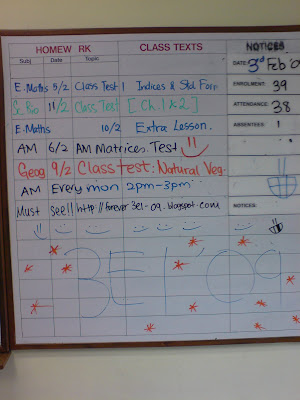 HOMEW RK CLASS TEXTS NOTICES
Subj Date Topic
DATE: 3rd Feb 09
ENROLMENT: 39
ATTENDANCE: 38
ABSENTEES: 1
E. Maths 5/2 Class Test 1 Indices & Std Form
11/2 Class Test [Ch. 1 & 2.]
E. Maths 10/2 Extra Lesson.
AM 6/2 AM Matrices. Test
Geog 9/2 Class test: Natural Veg.
AM Every mon 2pm-3pm
Must see!! http://forever3e1-09.blogspot.com
NOTICES:
3E1'09